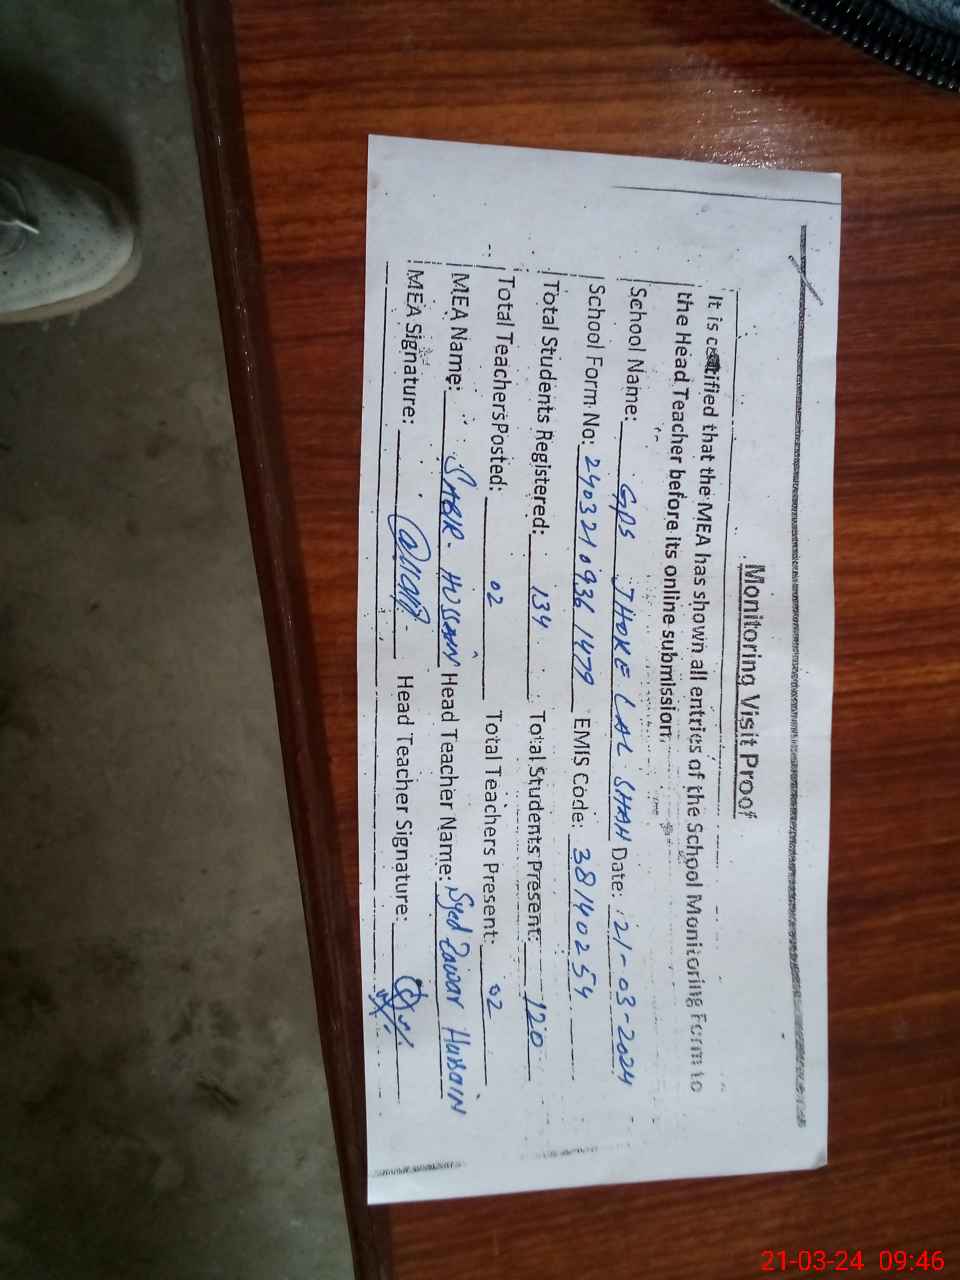 Monitoring Visit Proof
It is certified that the MEA has shown all entries of the School Monitoring Form to
the Head Teacher before its online submission.
School Name: GPS THOKE LAL SHAH Date: 21-03-2024
School Form No: 2403210936 1479 EMIS Code: 38140254
Total Students Registered: 134 Total Students Present: 120
Total TeachersPosted: 02 Total Teachers Present: 02
MEA Name: SABIR. HUSSAIN Head Teacher Name: Syed Zawar Hussain
MEA Signature: Head Teacher Signature:
21-03-24 09:46